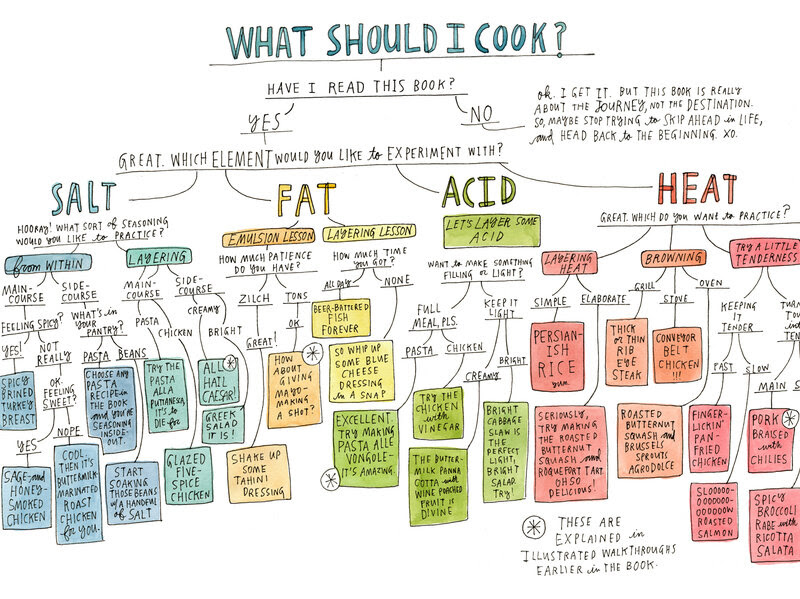 WHAT SHOULD I COOK?
HAVE I READ THIS BOOK?
YES
NO
ok. I GET IT. BUT THIS BOOK IS REALLY
ABOUT THE JOURNEY, NOT THE DESTINATION.
SO, MAYBE STOP TRYING to SKIP AHEAD in LIFE,
and HEAD BACK to THE BEGINNING. XO.
GREAT. WHICH ELEMENT WOULD YOU LIKE to EXPERIMENT WITH?
SALT
HOORAY! WHAT SORT of SEASONING
WOULD YOU LIKE to PRACTICE?
from WITHIN
MAIN-
COURSE
FEELING SPICY?
YES!
SPICY
BRINED
TURKEY
BREAST
NOT
REALLY
OK.
FEELING
SWEET?
YES
SAGE-and
HONEY-
SMOKED
CHICKEN
NOPE
COOL
THEN IT'S
BUTTERMILK
MARINATED
ROAST
CHICKEN
for YOU.
SIDE-
COURSE
WHAT'S in
YOUR
PANTRY?
PASTA
CHOOSE ANY
PASTA
RECIPE in
THE BOOK
and YOU'RE
SEASONING
INSIDE-
OUT.
BEANS
START
SOAKING
THOSE BEANS
w/ A HANDFUL
of SALT
LAYERING
MAIN-
COURSE
PASTA
TRY THE
PASTA
ALLA
PUTTANESA,
IT'S to
DIE for
CHICKEN
GLAZED
FIVE-
SPICE
CHICKEN
SIDE-
COURSE
CREAMY
ALL
HAIL
CAESAR!
BRIGHT
GREEK
SALAD
IT IS!
FAT
EMULSION LESSON
HOW MUCH PATIENCE
DO YOU HAVE?
ZILCH
GREAT!
SHAKE UP
SOME
TAHINI
DRESSING
TONS
OK
HOW
ABOUT
GIVING
MAYO-
MAKING
A SHOT?
LAYERING LESSON
HOW MUCH TIME
YOU GOT?
ALL DAY
BEER-BATTERED
FISH
FOREVER
NONE
SO WHIP UP
SOME BLUE
CHEESE
DRESSING
in A SNAP
ACID
LET'S LAYER SOME
ACID
WANT to MAKE SOMETHING
FILLING or LIGHT?
FULL
MEAL, PLS.
PASTA
EXCELLENT
TRY MAKING
PASTA ALLE
VONGOLE-
IT'S AMAZING.
CHICKEN
TRY THE
CHICKEN
with
VINEGAR
KEEP IT
LIGHT
CREAMY
THE BUTTER-
MILK PANNA
COTTA with
WINE POACHED
FRUIT is
DIVINE
BRIGHT
BRIGHT
CABBAGE
SLAW IS
THE
PERFECT
LIGHT,
BRIGHT
SALAD.
TRY!
HEAT
GREAT. WHICH DO YOU WANT to PRACTICE?
LAYERING
HEAT
SIMPLE
PERSIAN-
ISH
RICE
yum
ELABORATE
SERIOUSLY,
TRY MAKING
THE ROASTED
BUTTERNUT
SQUASH and
ROQUEFORT TART
OH SO
DELICIOUS!
BROWNING
GRILL
THICK
or THIN
RIB
EYE
STEAK
STOVE
CONVEYOR
BELT
CHICKEN
!!!
OVEN
ROASTED
BUTTERNUT
SQUASH and
BRUSSELS
SPROUTS
AGRODOLCE
TRY A LITTLE
TENDERNESS
KEEPING
IT
TENDER
FAST
FINGER-
LICKIN'
PAN-
FRIED
CHICKEN
SLOW
SLOOOOO-
OOOOOOO-
OOOOOOW
ROASTED
SALMON
TURN
TOU
int
TEN
MAIN
S
PORK
BRAISED
with
CHILIES
SPICY
BROCCOLI
RABE with
RICOTTA
SALATA
THESE ARE
EXPLAINED in
ILLUSTRATED WALKTHROUGHS
EARLIER in THE BOOK.